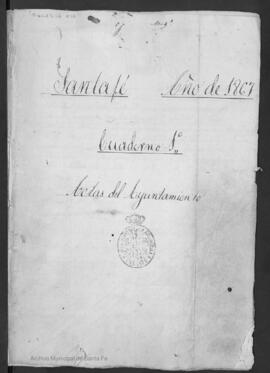 Santafé Año de 1907
Cuaderno 1º
Actas del Ayuntamiento
Archivo Municipal de Santa Fe